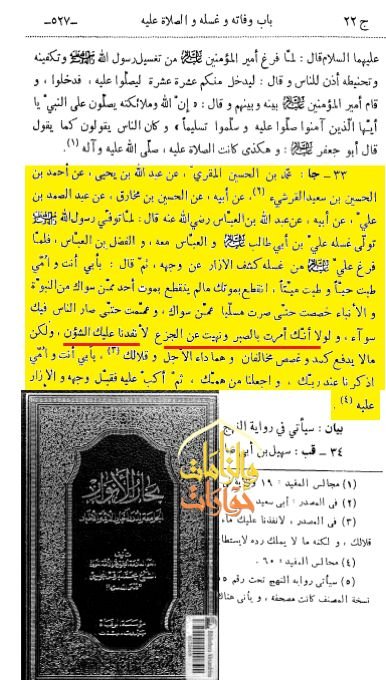 ج ٢٢ باب وفاته و غسله و الصلاة عليه -٥٢٧-
عليهما السلام قال : لمّا فرغ أمير المؤمنين من تغسيل رسول الله و تكفينه
وتحنيطه أذن للناس و قال : ليدخل منكم عشرة عشرة ليصلّوا عليه ، فدخلوا ، و
قام أمير المؤمنين بينه وبينهم و قال : « إنّ الله وملائكته يصلّون على النبيّ يا
أيّها الّذين آمنوا صلّوا عليه و سلّموا تسليماً » و كان الناس يقولون كما يقول
قال أبو جعفر : و هكذى كانت الصلاة عليه ، صلّى الله عليه و آله (١).
٣٣ ـ جا : محمّد بن الحسين المقري ، عن عبد الله بن يحيى ، عن أحمد بن
الحسين بن سعيد القرشي ، عن أبيه ، عن الحسين بن مخارق ، عن عبد الصمد بن
عليّ ، عن أبيه ، عن عبد الله بن العبّاس رضي الله عنه قال : لمّا توفّي رسول الله
تولّى غسله عليّ بن أبي طالب و العبّاس معه ، و الفضل بن العبّاس ، فلمّا
فرغ عليّ من غسله كشف الازار عن وجهه ، ثمّ قال : بأبي أنت و امّي
طبت حيّاً و طبت ميتاً ، انقطع بموتك مالم ينقطع بموت أحد ممّن سواك من النبوّة
و الأنباء خصصت حتّى صرت مسلّياً عمّن سواك ، و عمّمت حتّى صار الناس فيك
سواء ، و لولا أنّك أمرت بالصبر و نهيت عن الجزع لأنفدنا عليك الشؤن ، ولكن
مالا يدفع كمد و غصص مخالفان و هما داء الأجل و قلالك (٣) ، بأبي أنت و امّي
اذكرنا عند ربّك ، و اجعلنا من همّك ، ثمّ أكبّ عليه فقبّل وجهه و الازار
عليه (٤) .
بيان : سيأتي في رواية النهج
٣٤ ـ قب : سهيل بن أبي
(١) مجالس المفيد : ١٩ و
(٢) في المصدر : أبي سعيد
(٣) في المصدر ، لانفدنا عليك ماء
قلالك ، و لكنه ما لا يملك رده
(٤) مجالس المفيد : ٦٠ .
(٥) سيأتي رواية النهج تحت رقم ٥٥
نسخة المصنف كانت مصحفة ، و يأتي هناك
بحار الأنوار